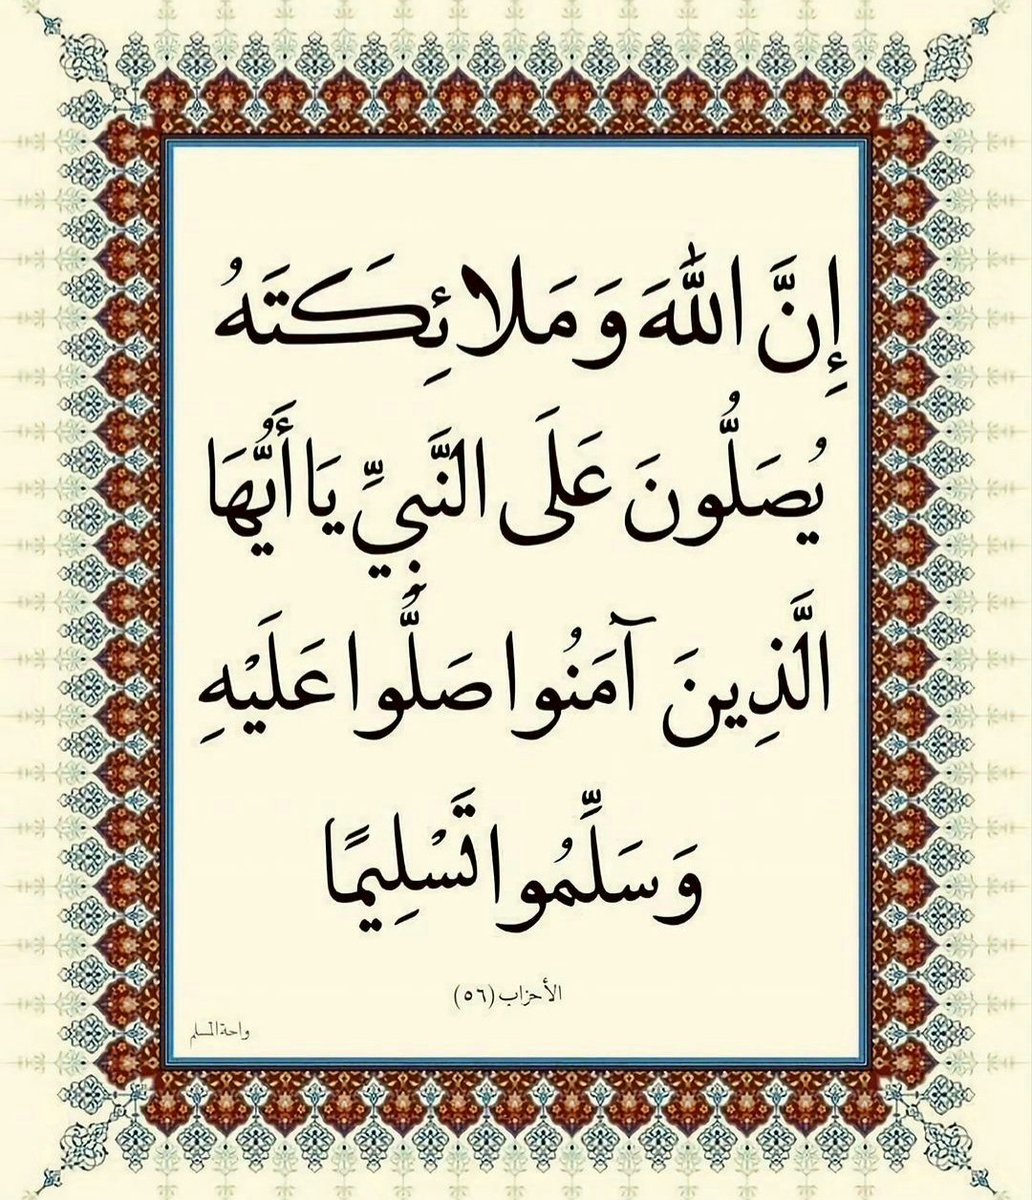 إِنَّ اللَّهَ وَمَلائِكَتَهُ
يُصَلُّونَ عَلَى النَّبِيِّ يَا أَيُّهَا
الَّذِينَ آمَنُوا صَلُّوا عَلَيْهِ
وَسَلِّمُوا تَسْلِيمًا
الأحزاب (٥٦)
واحة المسلم